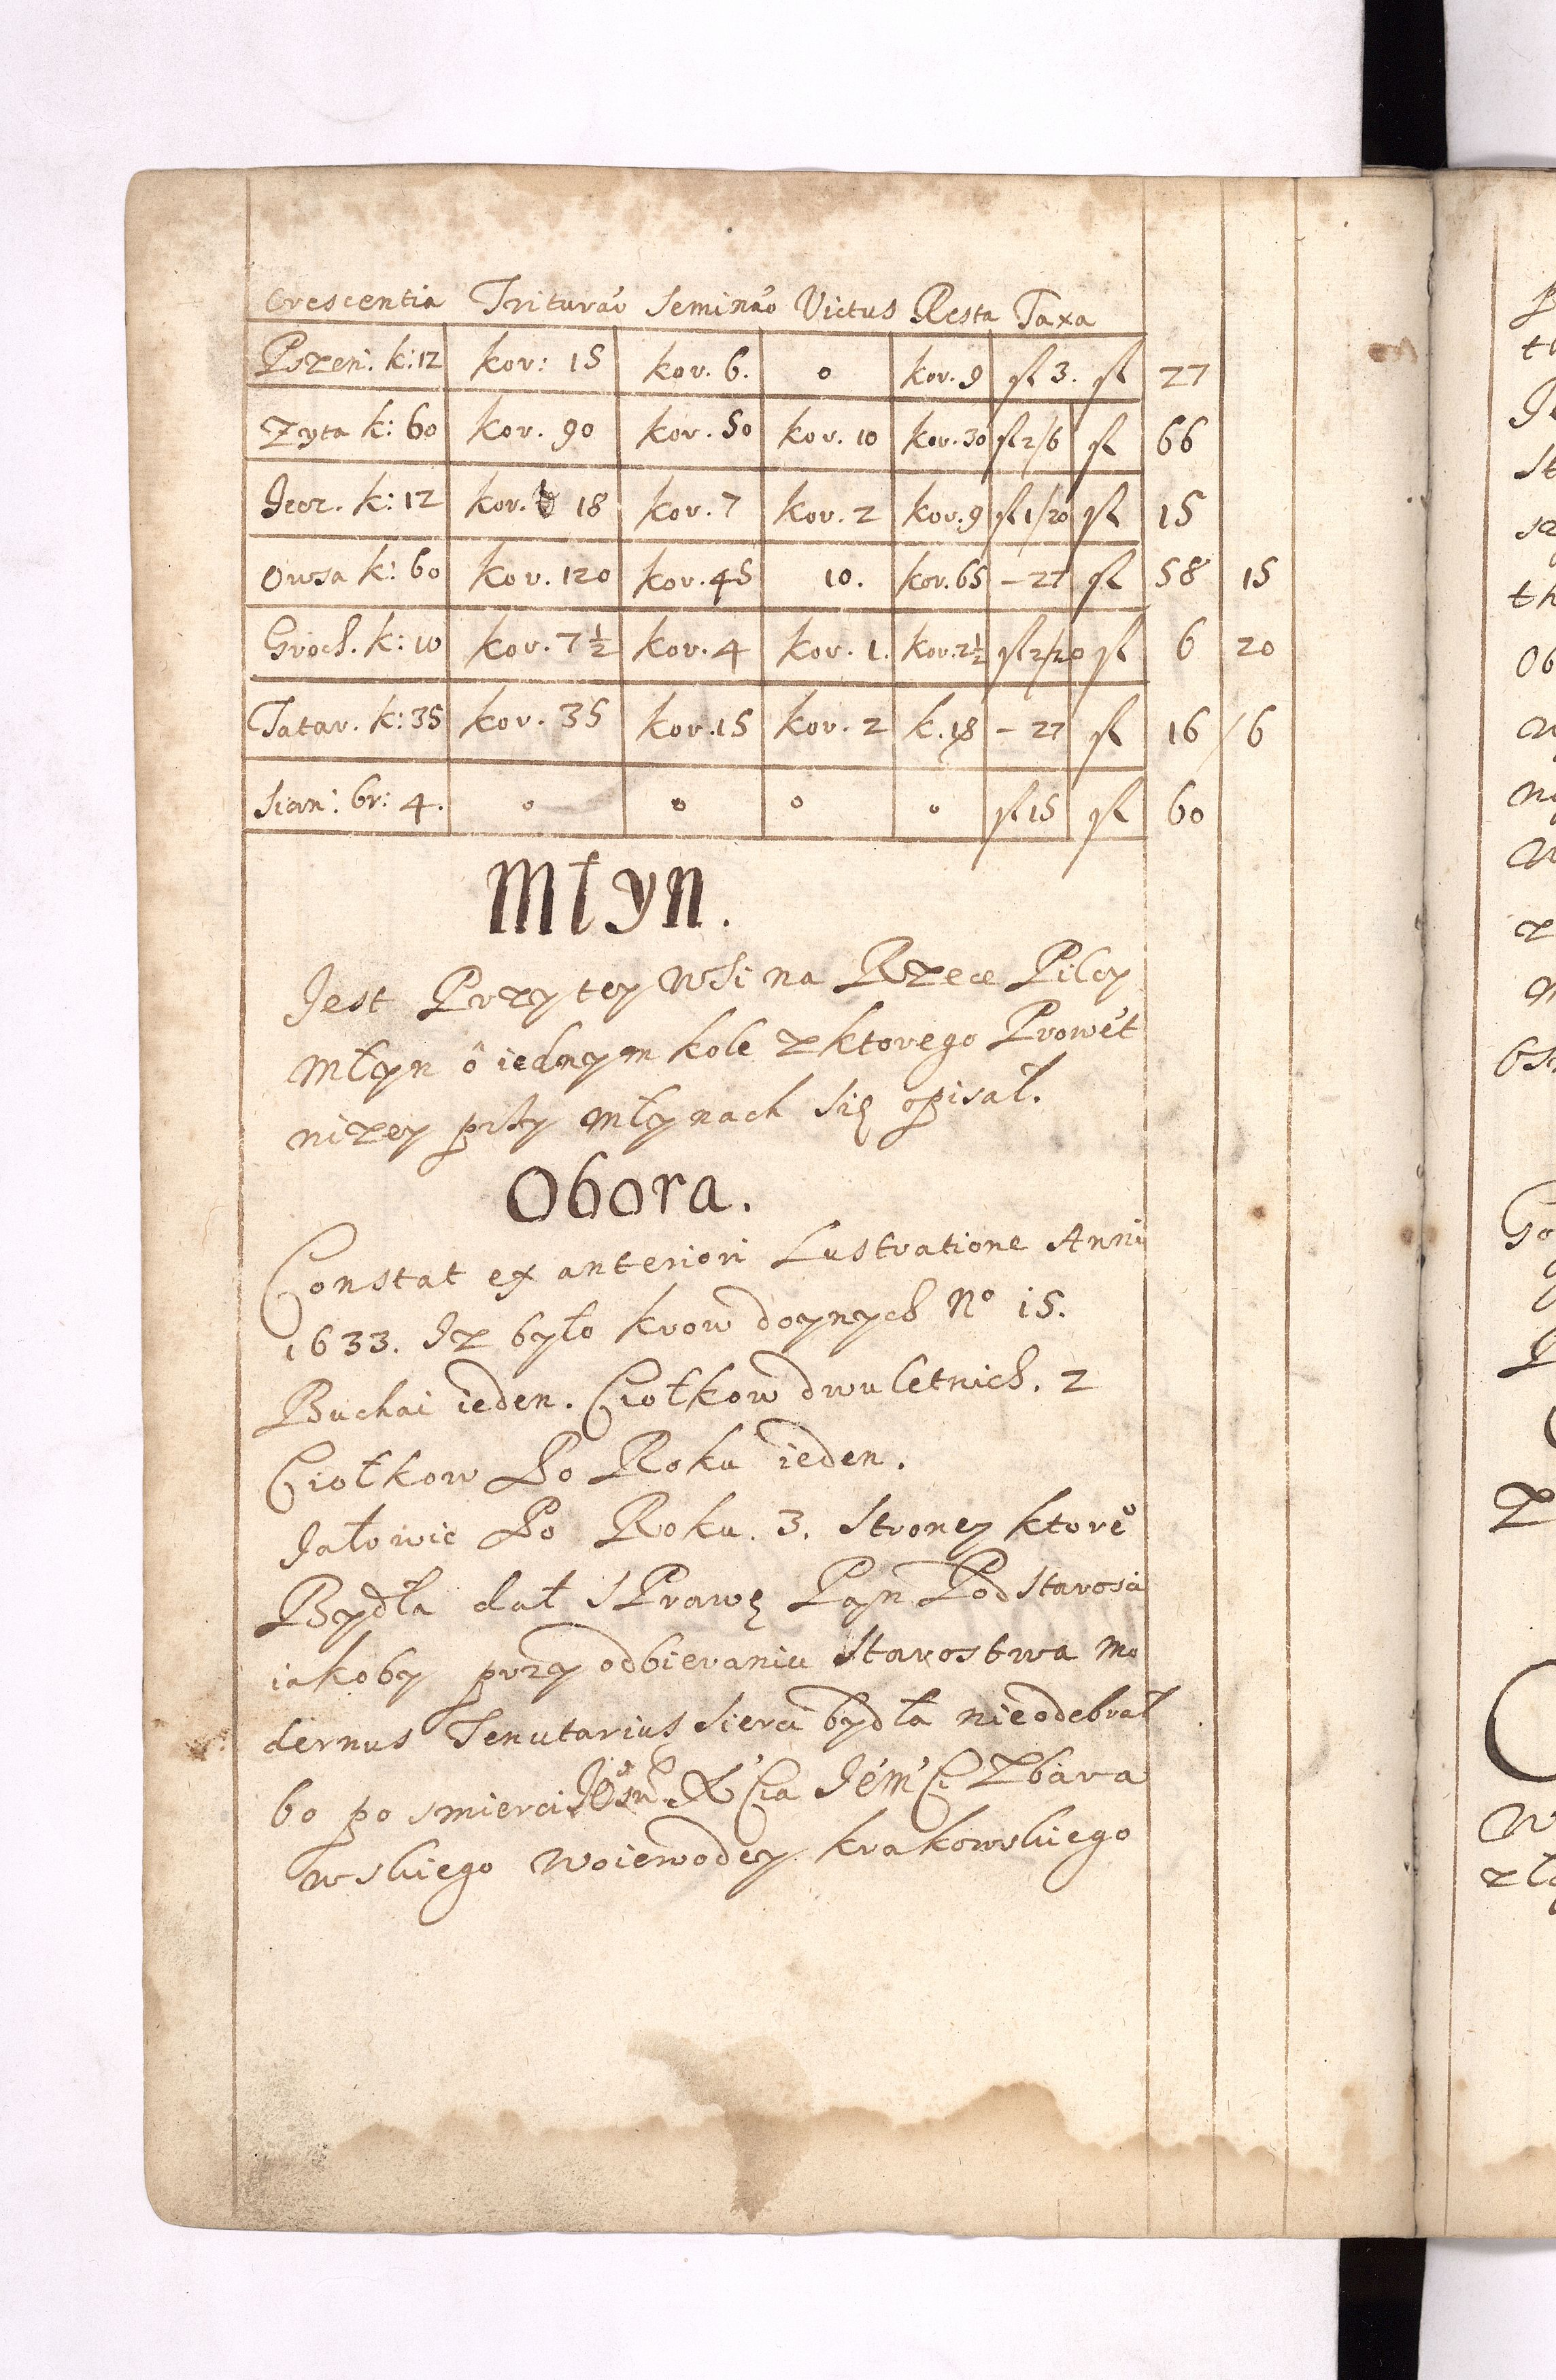 Crescentia Triturao Seminao Victus Resta Taxa
Pszen: k: 12 kor: 15 kor. 6. 0 kor. 9 fl 3. fl 27
Zyta k: 60 kor. 90 kor. 50 kor. 10 kor. 30 fl 2/6 fl 66
Jecz. k: 12 kor. 18 kor. 7 kor. 2 kor. 9 fl 1/20 fl 15
Owsa k: 60 kor. 120 kor. 45 10. kor. 65 - 27 fl 58 15
Groch. k: 10 kor. 7 1/2 kor. 4 kor. 1. kor. 2 1/2 fl 2/20 fl 6 20
Tatar. k: 35 kor. 35 kor. 15 kor. 2 k. 18 - 27 fl 16 / 6
Sian: br: 4. 0 0 0 0 fl 15 fl 60
Młyn.
Jest Przy tey wsi na Rzece Pilcy
młyn ô iednym kole z ktorego Prowet
nizey przy młynach się opisał.
Obora.
Constat ex anteriori Lustratione Anni
1633. Iz było krow doynych No 15.
Buchai ieden. Ciołkow dwuletnich. 2
Ciołkow Po Roku ieden.
Jałowic Po Roku. 3. Stroney ktoreo
Bydła dał sprawę Pan Podstarosci
iakoby przy odbieraniu Starostwa mo
dernus Tenutarius Siera bydła nieodebrał
bo po smierci X Cia Jem Ci Zbara
wskiego woiewody krakowskiego